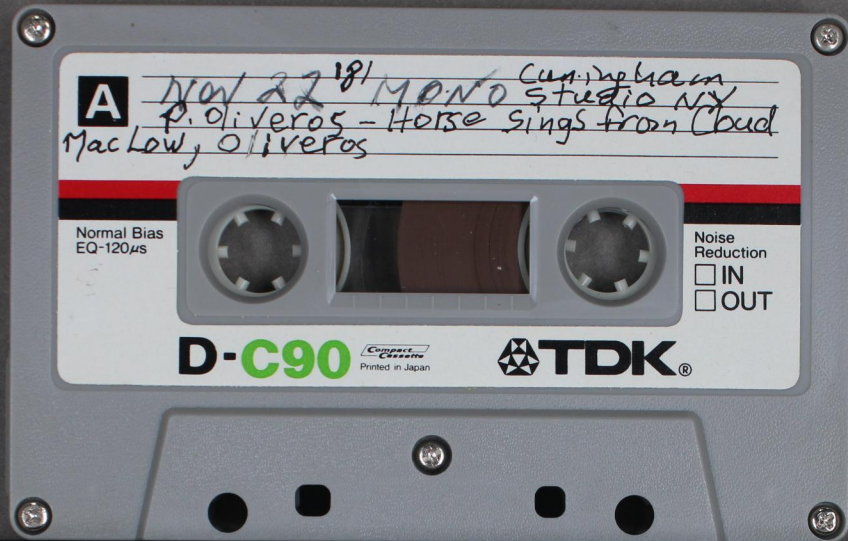 A
Nov 22 '81 MONO Cuningham
Studio NY
P. Oliveros - Horse Sings from Cloud
Mac Low, Oliveros
Normal Bias
EQ-120µs
Noise
Reduction
IN
OUT
D-C90
Compact
Cassette
Printed in Japan
TDK®